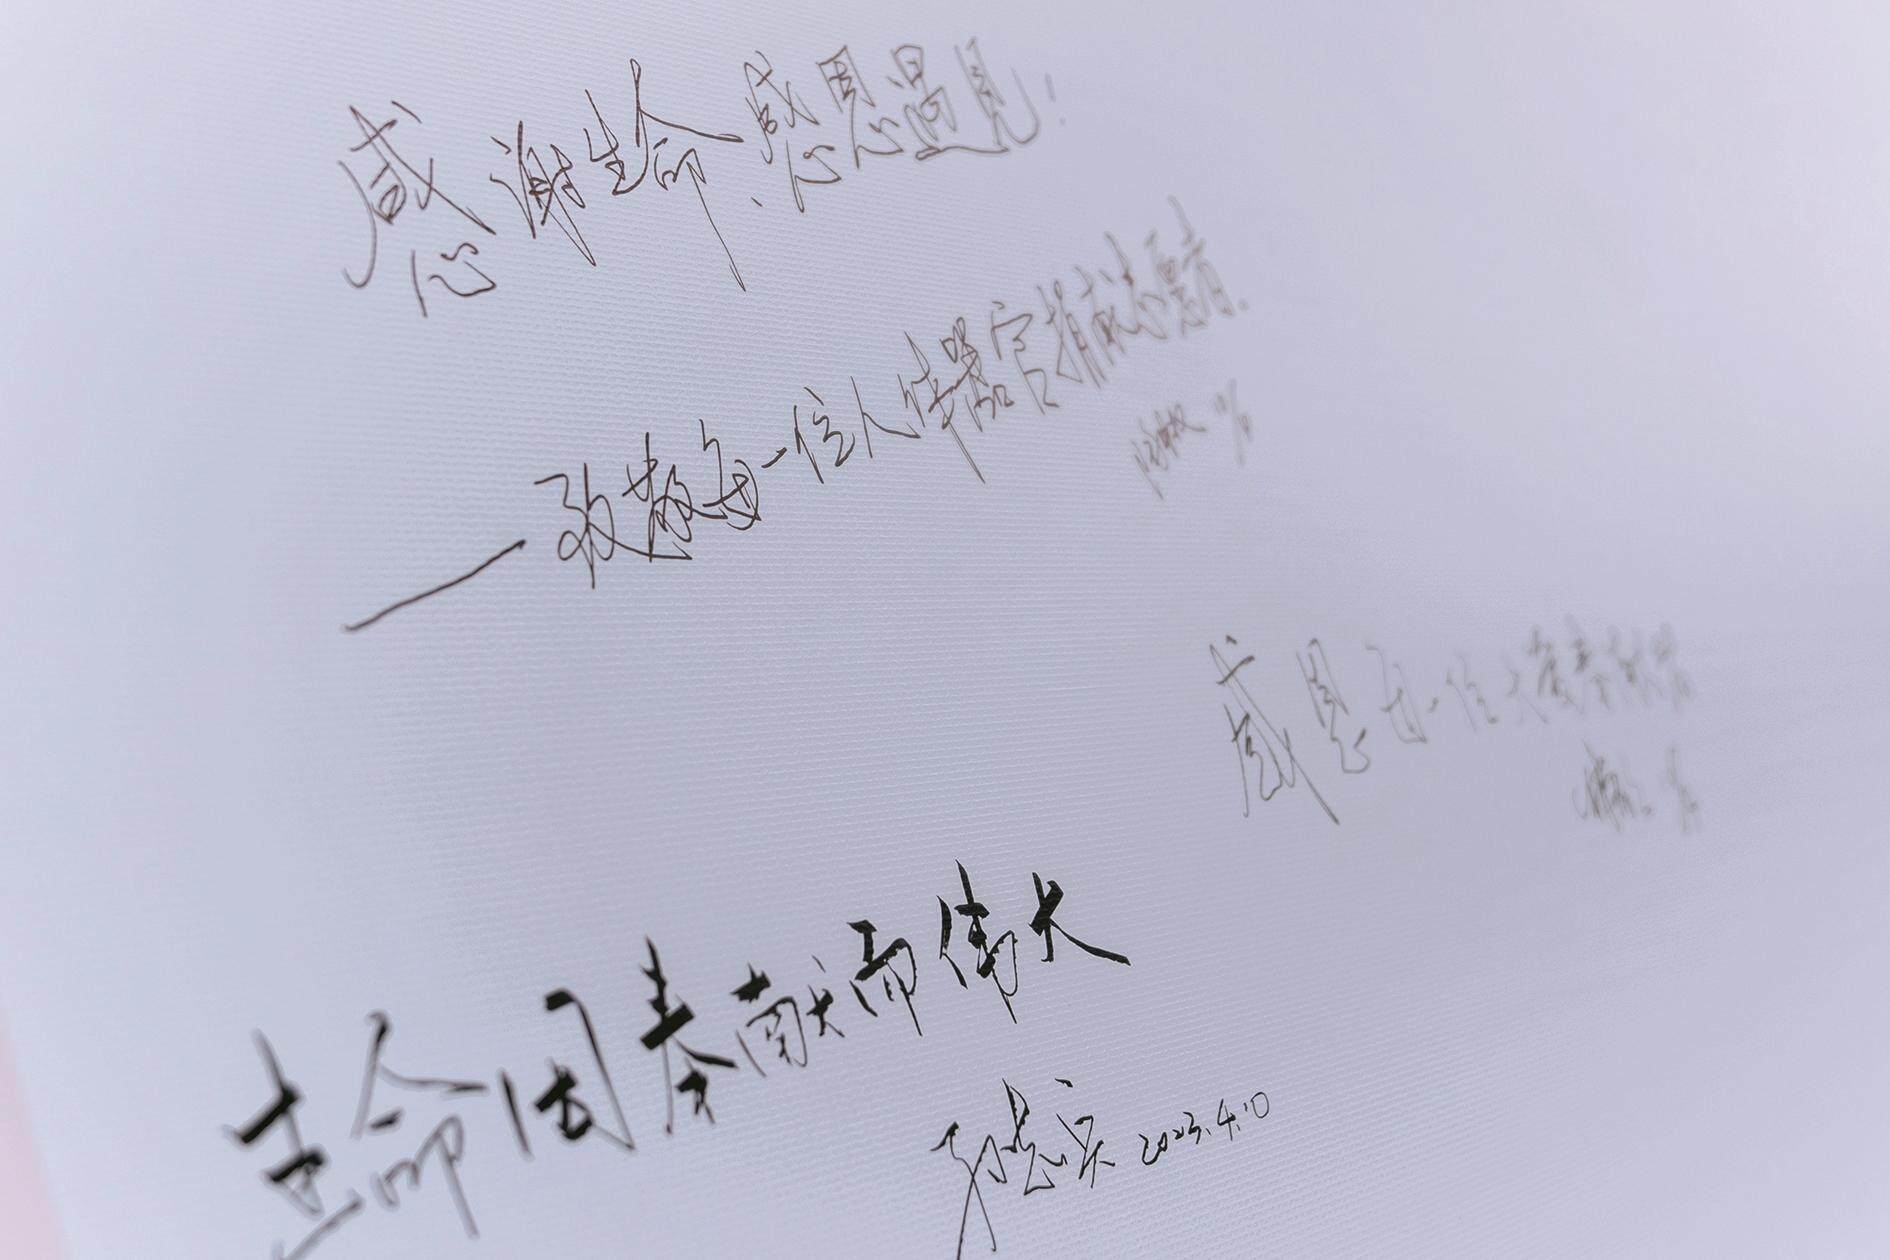 感谢生命、感恩遇见!
——致敬每一位人体器官捐献志愿者.
感恩每一位大爱奉献者
生命因奉献而伟大
2023.4.10